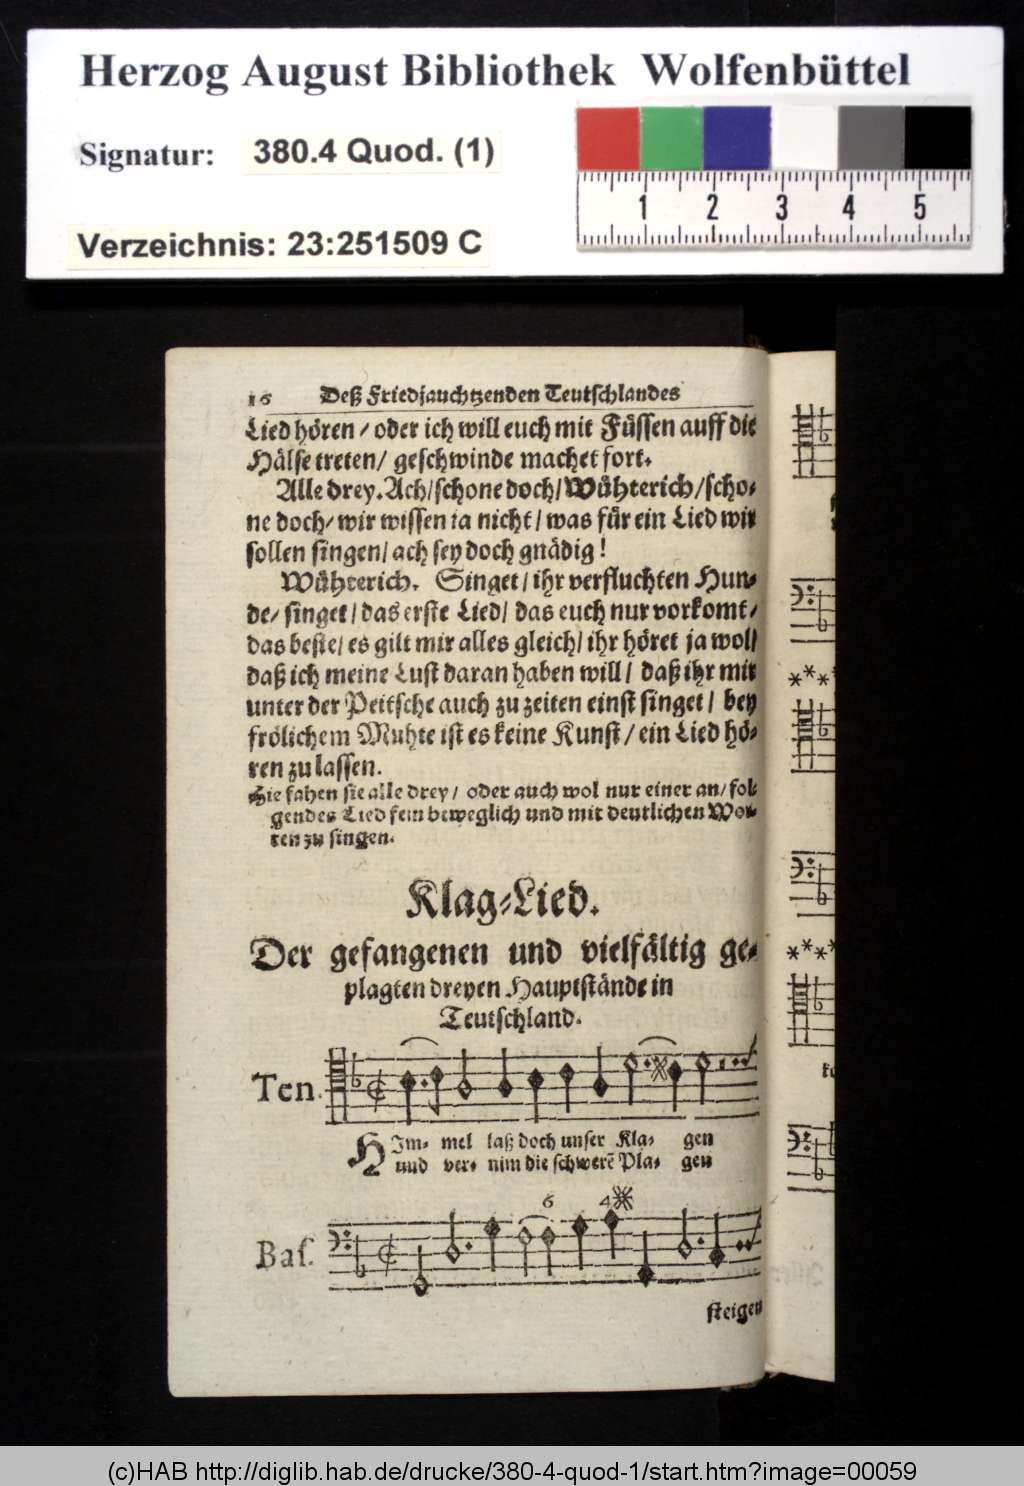 Herzog August Bibliothek Wolfenbüttel
Signatur: 380.4 Quod. (1)
1 2 3 4 5
Verzeichnis: 23:251509 C
16 Deß Friedjauchtzenden Teutschlandes
Lied hören / oder ich will euch mit Füssen auff die
Hälse treten / geschwinde machet fort.
Alle drey. Ach / schone doch / Wühterich / scho-
ne doch / wir wissen ja nicht / was für ein Lied wir
sollen singen / ach sey doch gnädig!
Wühterich. Singet / ihr verfluchten Hun-
de / singet / das erste Lied / das euch nur vorkomt /
das beste / es gilt mir alles gleich / ihr höret ja wol /
daß ich meine Lust daran haben will / daß ihr mir
unter der Peitsche auch zu zeiten einst singet / bey
frölichem Muhte ist es keine Kunst / ein Lied hö-
ren zu lassen.
Hie fahen sie alle drey / oder auch wol nur einer an / fol-
gendes Lied fein beweglich und mit deutlichen Wor-
ten zu singen.
Klag-Lied.
Der gefangenen und vielfältig ge-
plagten dreyen Hauptstände in
Teutschland.
Ten.
HIm- mel laß doch unser Kla- gen
und ver- nim die schwerē Pla- gen
6 4
Bas.
steigen
(c)HAB http://diglib.hab.de/drucke/380-4-quod-1/start.htm?image=00059